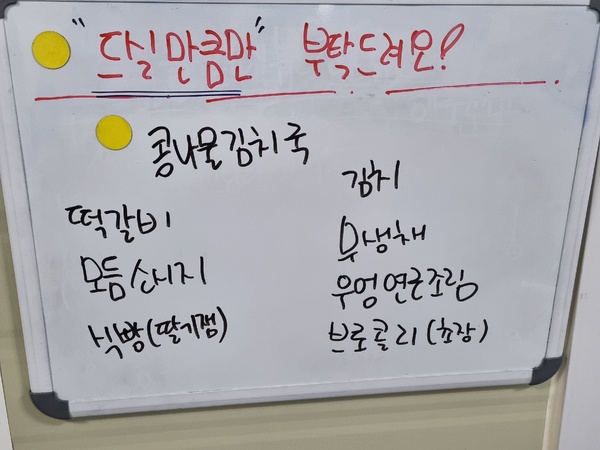 "드실만큼만" 부탁드려요!
콩나물김치국
김치
떡갈비
무생채
모듬소시지
우엉연근조림
식빵(딸기잼)
브로콜리(초장)